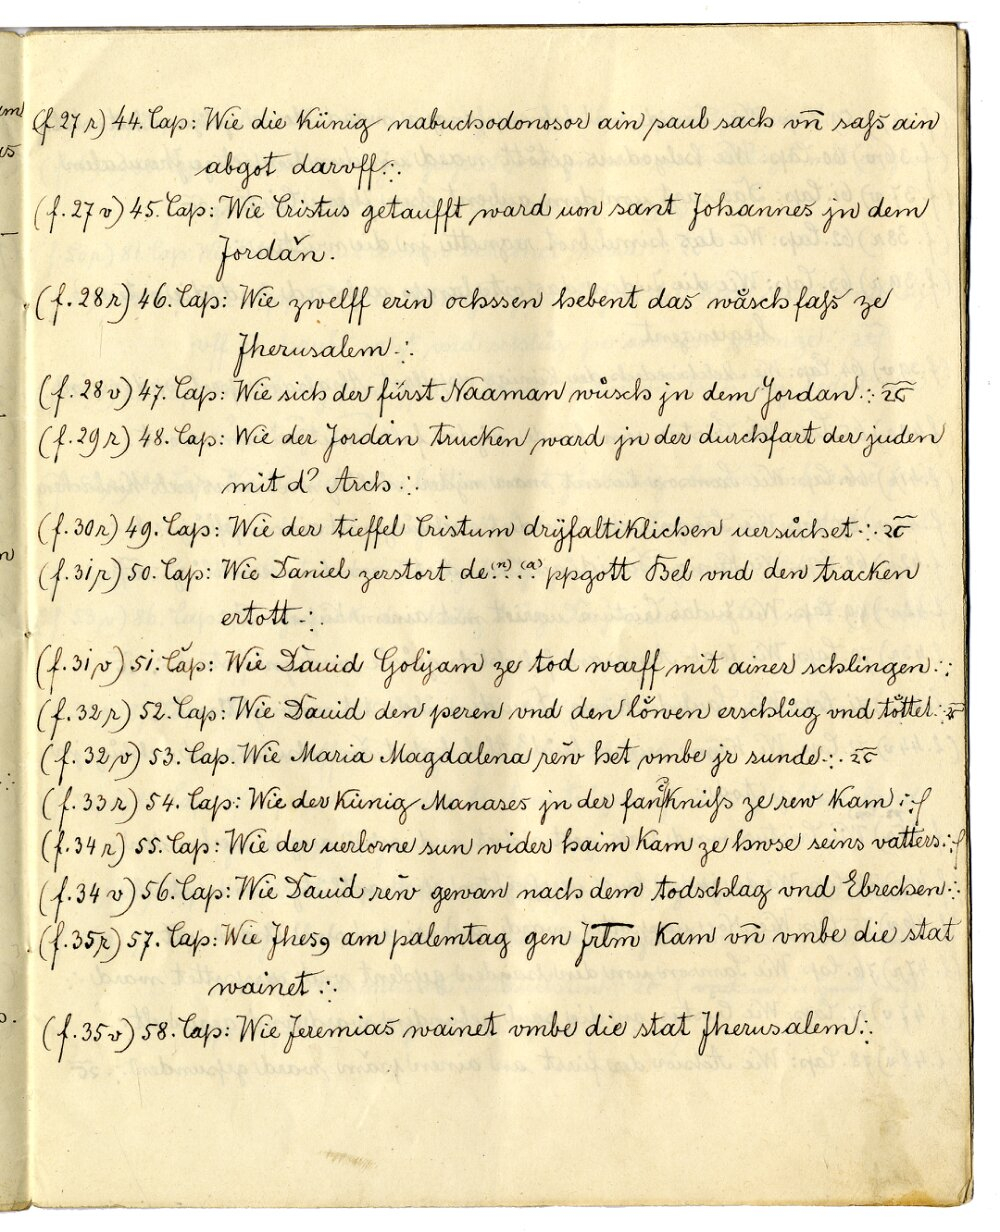 (f. 27 r) 44. Cap: Wie die Künig nabuchodonosor ain saul sach vn̄ saſs ain
abgot daruff∴
(f. 27 v) 45. Cap: Wie Cristus getaufft ward uon sant Johannes jn dem
Jordǎn.
(f. 28 r) 46. Cap: Wie zwelff erin ochssen hebent das wåschfaſs ze
Jherusalem∴
(f. 28 v) 47. Cap: Wie sich der fúrst Naaman wůsch jn dem Jordan∴
(f. 29 r) 48. Cap: Wie der Jordan trucken ward jn der durchfart der juden
mit d' Arch∴
(f. 30 r) 49. Cap: Wie der tieffel Cristum drÿfaltiklichen uersůchet∴
(f. 31 r) 50. Cap: Wie Daniel zerstort de.(n). .(a). ppgott Bel vnd den tracken
ertott∴
(f. 31 v) 51. Cap: Wie Dauid Golijam ze tod warff mit ainer schlingen∴
(f. 32 r) 52. Cap: Wie Dauid den peren vnd den lo̊wen erschlůg vnd to̊ttet∴
(f. 32 v) 53. Cap. Wie Maria Magdalena rew̌ het vmbe jr sunde∴
(f. 33 r) 54. Cap: Wie der Künig Manases jn der fan?knuſs ze rew kam∴
(f. 34 r) 55. Cap: Wie der uerlorne sun wider haim kam ze hwse seins vatters∴
(f. 34 v) 56. Cap: Wie Dauid rew̌ gewan nach dem todschlag vnd Ebrechen∴
(f. 35 r) 57. Cap: Wie Jhesꝯ am palemtag gen Jrl̄m kam vn̄ vmbe die stat
wainet∴
(f. 35 v) 58. Cap: Wie Jeremias wainet vmbe die stat Jherusalem∴